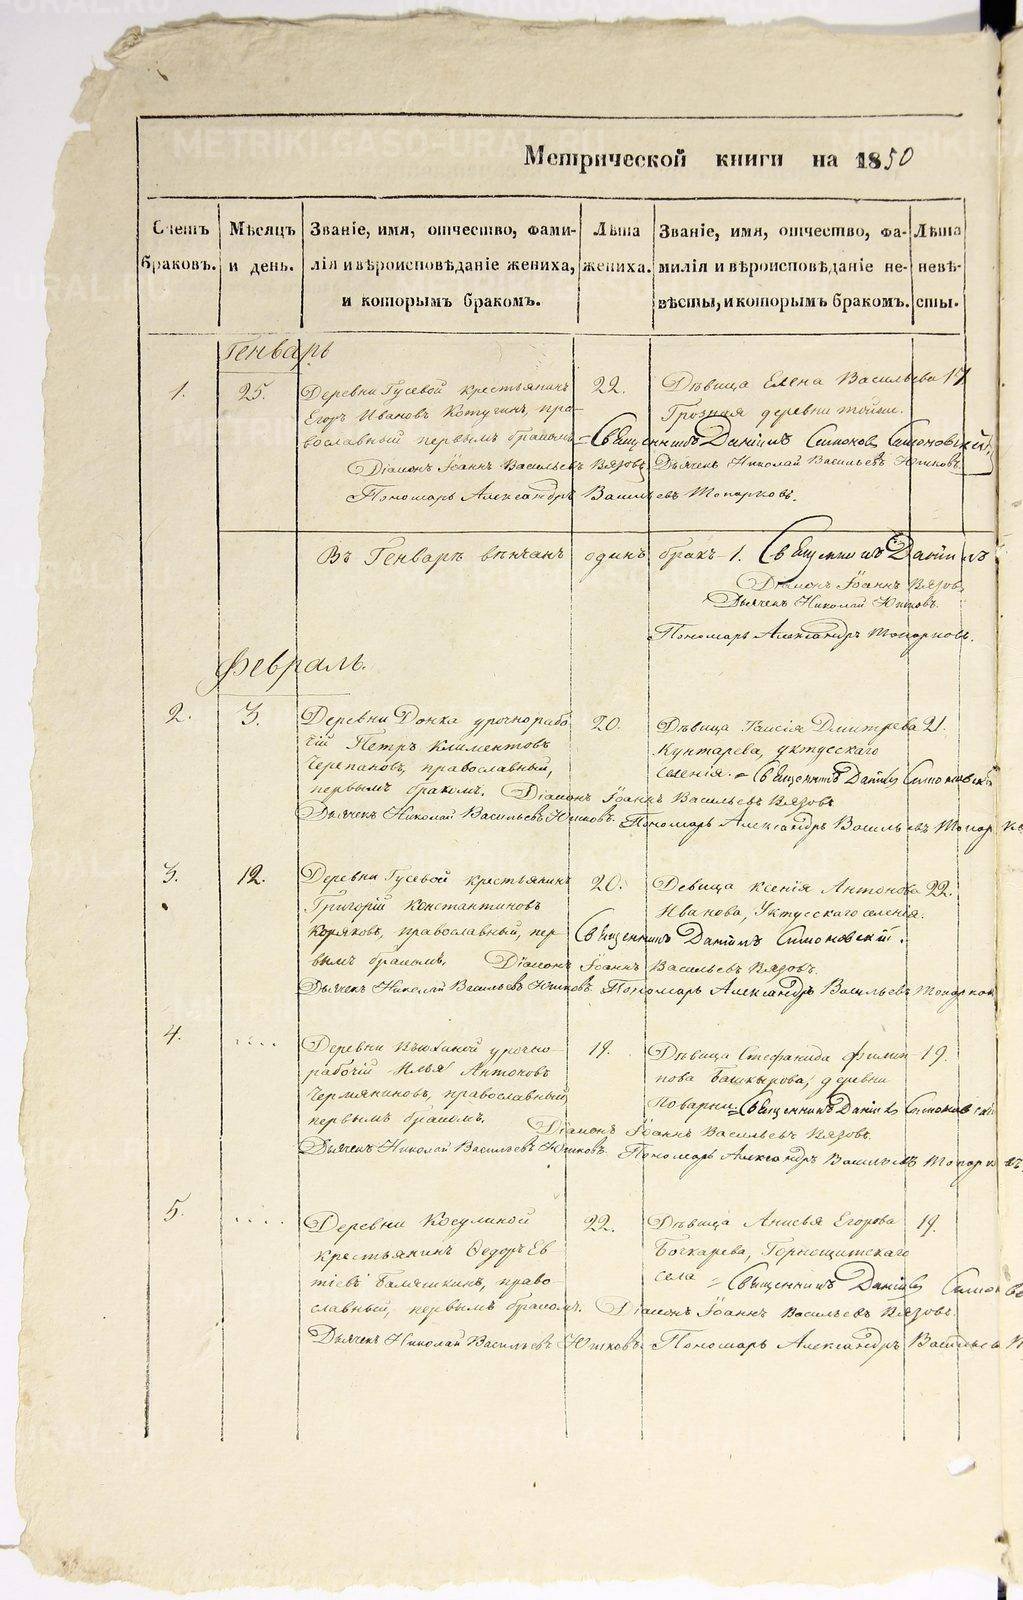 Метрической книги на 1850
Счетъ браковъ.
Мѣсяцъ и день.
Званіе, имя, отчество, фами-
лія и вѣроисповѣданіе жениха,
и которымъ бракомъ.
Лѣта жениха.
Званіе, имя, отчество, фа-
милія и вѣроисповѣданіе не-
вѣсты, и которымъ бракомъ.
Лѣта невѣ-
сты.
Генварь
1. 25. Деревни Гусевой крестьянинъ 22. Дѣвица Елена Васильева 17
Егоръ Ивановъ Котугинъ, пра- Грозная деревни тойже.
вославный первымъ бракомъ = Священникъ Даніилъ Симоновъ Симоновскій
Діаконъ Іоаннъ Васильевъ Вязовъ Дьячекъ Николай Васильевъ Юшковъ.
Пономарь Александръ Васильевъ Топорковъ.
Въ Генварѣ вѣнчанъ одинъ бракъ – 1. Священникъ Даніилъ
Діаконъ Іоаннъ Вязовъ
Дьячекъ Николай Юшковъ.
Пономарь Александръ Топорковъ.
Февраль.
2. 3. Деревни Донка урочнорабо 20. Дѣвица Таисія Дмитрева 21.
чій Петръ Климентовъ Кунтарева, уктусскаго
Черепановъ, православный, селенія. = Священникъ Даніилъ Симоновскій
первымъ бракомъ. Діаконъ Іоаннъ Васильевъ Вязовъ
Дьячекъ Николай Васильевъ Юшковъ. Пономарь Александръ Васильевъ Топорков
3. 12. Деревни Гусевой крестьянинъ 20. Девица Ксенія Антонова 22.
Григорій Константиновъ Иванова, Уктусскаго селенія.
Коряковъ, православный, пер Священникъ Даніилъ Симоновскій.
вымъ бракомъ. Діаконъ Іоаннъ Васильевъ Вязовъ.
Дьячекъ Николай Васильевъ Юшковъ. Пономарь Александръ Васильевъ Топорков
4. .... Деревни урочно- 19. Дѣвица Стефанида Филип 19.
рабочій Илья Антоновъ пова Башкырова, деревни
Чермяниновъ, православный Поварни = Священникъ Даніилъ Симоновскій
первымъ бракомъ. Діаконъ Іоаннъ Васильевъ Вязовъ.
Дьячекъ Николай Васильевъ Юшковъ. Пономарь Александръ Васильевъ Топорковъ.
5. .... Деревни Косулиной 22. Дѣвица Анисья Егорова 19.
крестьянинъ Ѳедоръ Ев Бочкарева, Горнощитскаго
тіевъ Баляшкинъ, право села = Священникъ Даніилъ Симонов
славный, первымъ бракомъ. Діаконъ Іоаннъ Васильевъ Вязовъ
Дьячекъ Николай Васильевъ Юшковъ. Пономарь Александръ Васильевъ